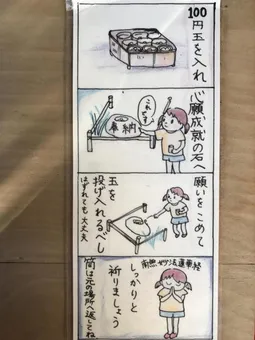 100円玉を入れ
心願成就の石へ
これだ!
奉納
願いをこめて
玉を
投げ入れるべし
はずれても大丈夫
南無妙法蓮華経
しっかりと
祈りましょう
筒は元の場所へ返してね